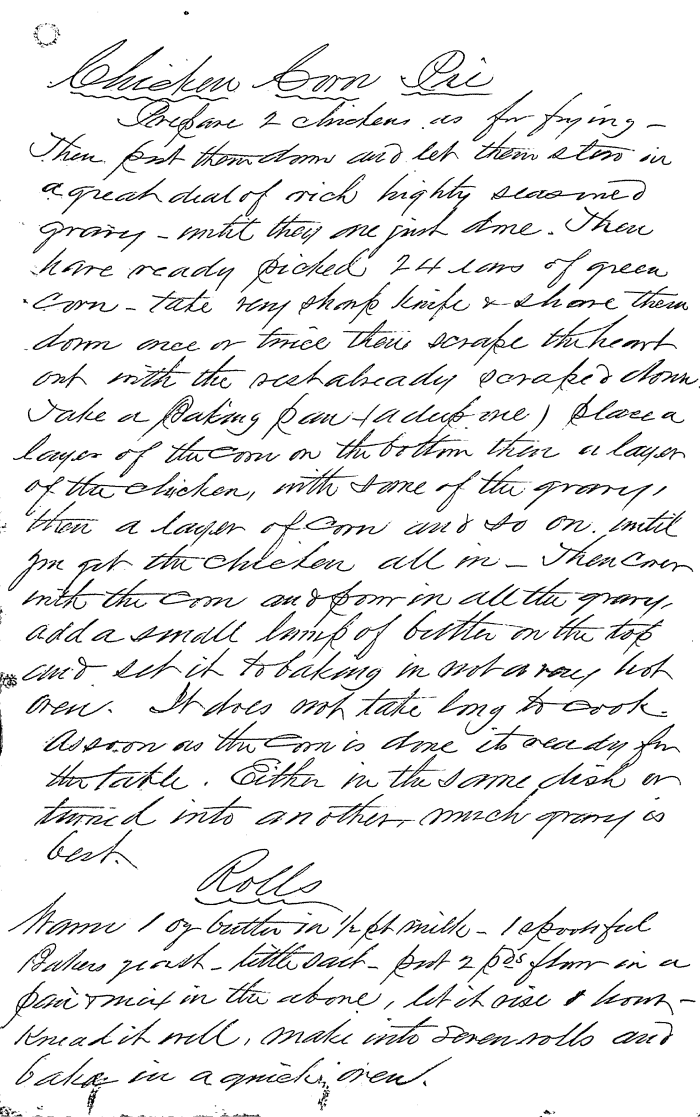 Chicken Corn Pie
Prepare 2 chickens as for frying –
Then put them down and let them stew in
a great deal of rich highly seasoned
gravy – until they are just done. Then
have ready picked 24 ears of green
corn – take very sharp knife & shave them
down once or twice then scrape the heart
out with the rest already scraped down
Take a Baking pan – (a deep one) place a
layer of the corn on the bottom then a layer
of the chicken, with some of the gravy,
then a layer of corn and so on until
you get the chicken all in – Then cover
with the corn and pour in all the gravy,
add a small lump of butter on the top
and set it to baking in not a very hot
oven. It does not take long to cook –
As soon as the corn is done it is ready for
the table. Either in the same dish or
turned into another, much gravy is
best.
Rolls
Warm 1 oz butter in ½ pt milk – 1 spoonful
Bakers yeast – little salt – put 2 pds flour in a
pan & mix in the above, let it rise 1 hour –
Knead it well, make into seven rolls and
bake in a quick oven.